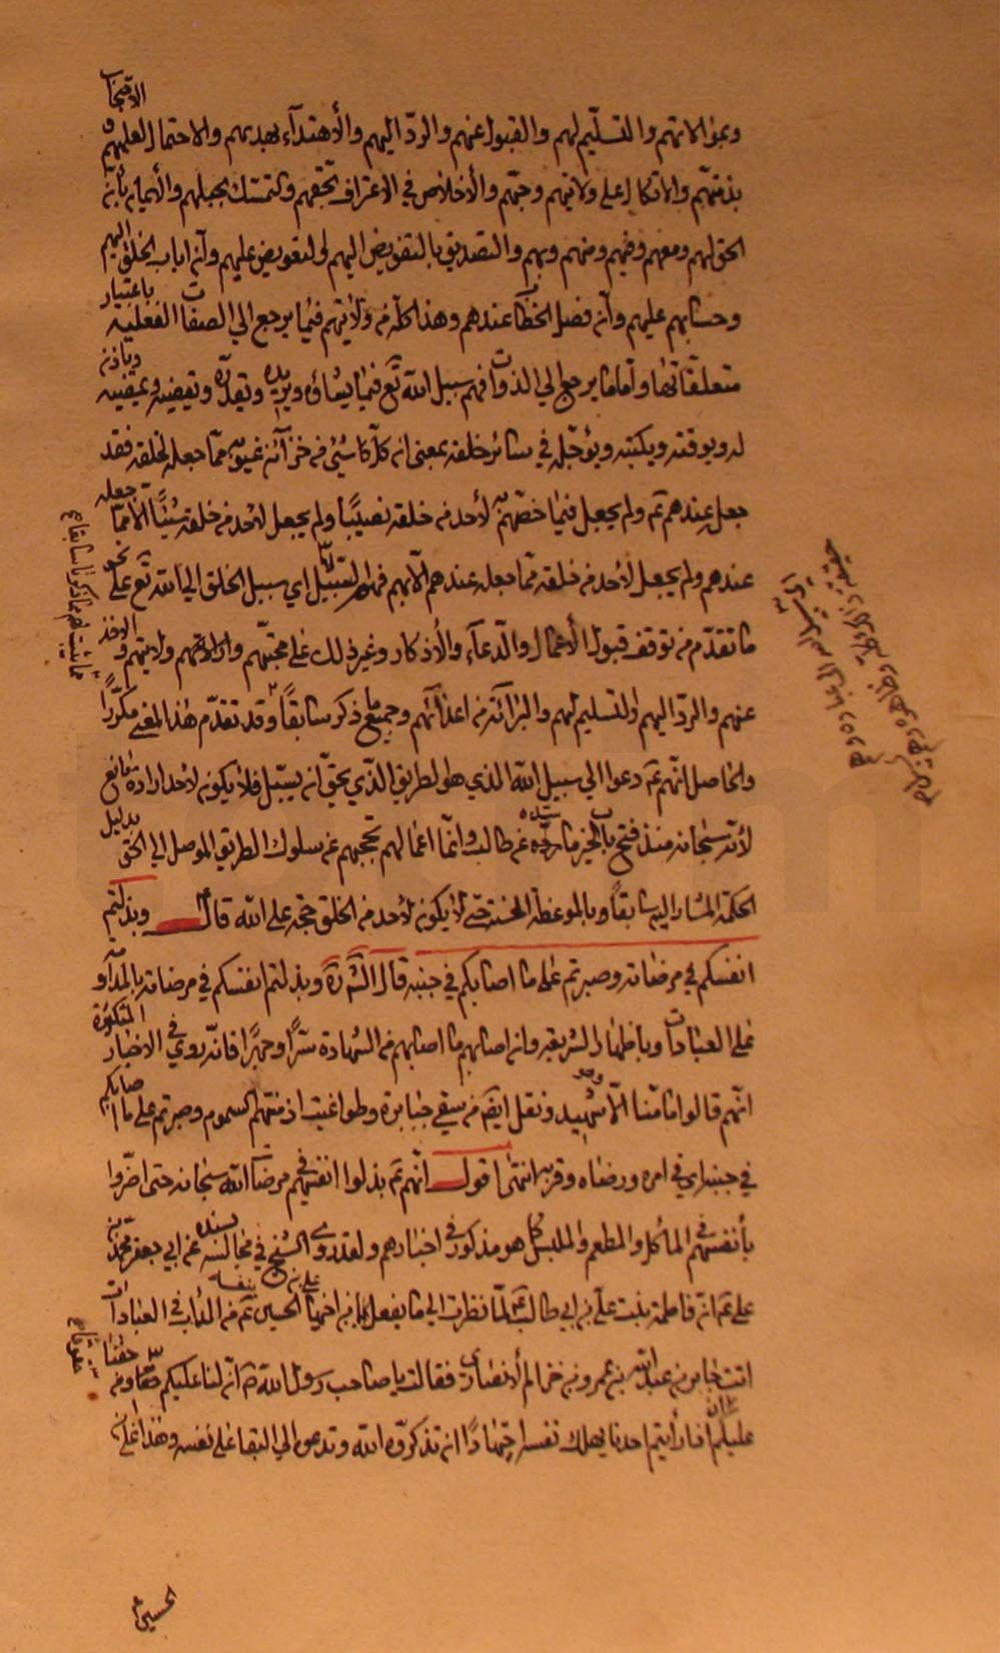 وبموالاتهم والتسليم لهم والقبول عنهم والردّ اليهم والأهتدآء بهديهم والاحتمال لعلمهم والاحتجاب
بذمتهم والاتكال على ولايتهم وحبّهم والأخلاص في الاعتراف بحقهم والتمسّك بحبلهم والأيمان بأنّ
الحق لهم ومعهم وفيهم ومنهم وبهم والتصديق بالتفويض اليهم لا التفويض عليهم وأن اياب الخلق اليهم
وحسابهم عليهم وأن فصل الخطاب عندهم وهذا كلّه من ولايتهم فيما يرجع الي الصفات الفعلية باعتبار
متعلقاتها وأما ما يرجع الي الذوات فهم سبيل الله تع فيما يشاؤه ويريده ويقدّره ويقضيه ويمضيه وياذن
له ويوقته ويكتبه ويؤجّله في سائر خلقه بمعنى ان كلّ شيئ في خزآئن غيوبه ممّا جعله لخلقه فقد
جعله عندهم تم ولم يجعل فيما خصّهم به لأحد من خلقه نصيبًا ولم يجعل لأحد من خلقه شيئًا الا ممّا جعله
عندهم ولم يجعل لأحد من خلقه ممّا جعله عندهم الّا بهم فهم السبيل اي سبيل الخلق الي الله تع على نحو
ما تقدّم من توقف قبول الأعمال والدّعآء والأذكار وغير ذلك على محبّتهم وولايتهم والاخذ
عنهم والردّ اليهم والتسليم لهم والبرآئة من اعدآئهم وجميع ما ذكر سابقاً وقد تقدّم هذا المعنى مكرّراً
والحاصل انّهم عم دعوا الي سبيل الله الذي هو الطريق الّذي يحقّ ان يسبّل فلا يكون لأحد اراده مانع
لأنّه سبحانه منذ فتح باب الخير ما ردّه عن طالب وانّما اعمالهم تحجبهم عن سلوك الطريق الموصل الي الحق بدليل
الحكمة المشار اليه سابقاً وبالموعظة الحسنة حتى لا يكون لأحد من الخلق حجة على الله قال وبذلتم
انفسكم في مرضاته وصبرتم على ما اصابكم في جنبه قال الشارح ره وبذلتم انفسكم في مرضاته بالمداومة
على العبادات وباظهار الشريعة وان اصابهم ما اصابهم من الشهادة سرّاً وجهرًا فانّه روي في الاخبار المتكثرة
انّهم قالوا ما منّا الّا شهيد ونقل ايض من سقي جبابرة وطواغيت ازمنتهم السموم وصبرتم على ما اصابكم
في جنبه اي في امره ورضاه وقربه انتهى اقول انّهم عم بذلوا انفسهم في مرضات الله سبحانه حتى اضرّوا
بأنفسهم في المأكل والمطعم والملبس كل هو مذكور في اخبارهم ولقد روي الشيخ في مجالسه بسنده عن ابي جعفر محمد بن
علي عم ان فاطمة بنت علي بن ابي طالب عم لمّا نظرت الي ما يفعل ابن اخيها علي بن الحسين عم بنفسه من الدأب في العبادات
اتت جابر بن عبد الله بن عمرو بن حزام الأنصاري فقالت يا صاحب رسول الله ص انّ لنا عليكم حقوقا ومن حقنا
عليكم ان اذا رأيتم احدنا يهلك نفسه اجتهادًا ان تذكروه الله وتدعوه الي البقيا على نفسه وهذا علي بن
الحسين عم